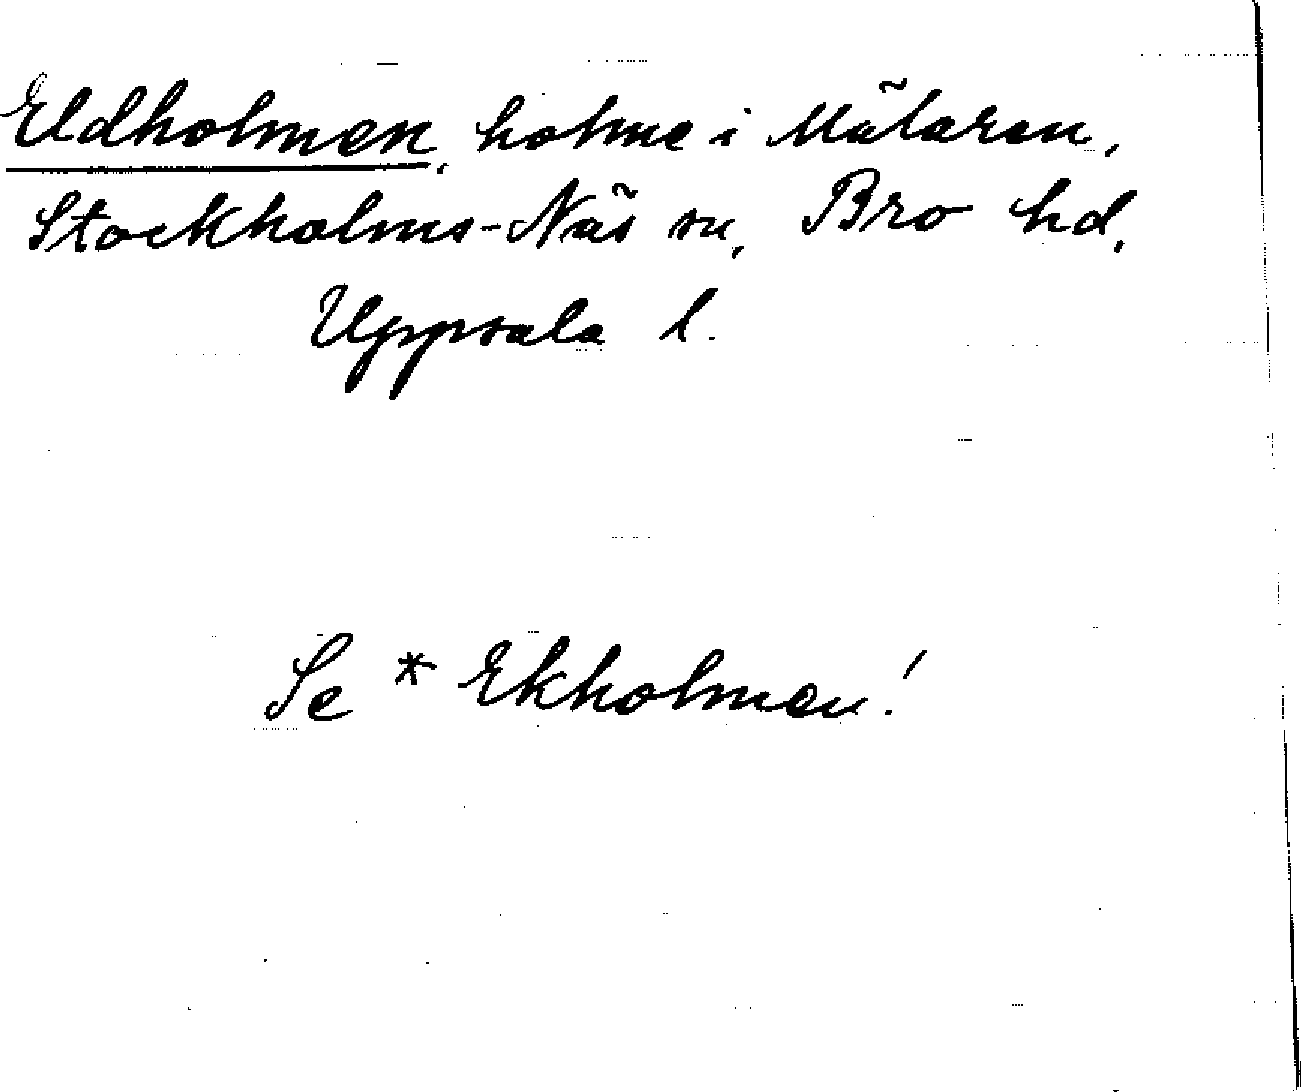 Eldholmen, holme i Mälaren,
Stockholms-Näs sn, Bro hd,
Uppsala l.
Se * Ekholmen!